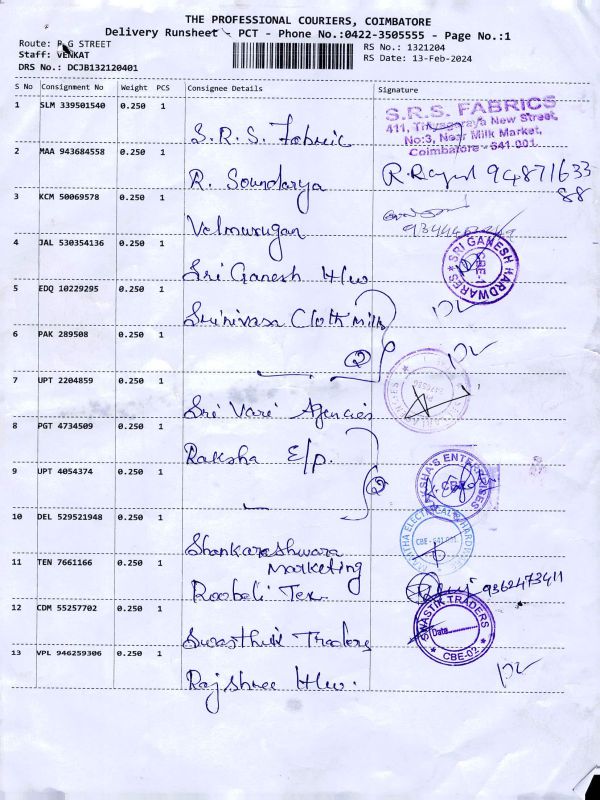 THE PROFESSIONAL COURIERS, COIMBATORE
Delivery Runsheet - PCT - Phone No.:0422-3505555 - Page No.:1
Route: P G STREET
Staff: VENKAT
DRS No.: DCJB132120401
RS No.: 1321204
RS Date: 13-Feb-2024
S No Consignment No Weight PCS Consignee Details Signature
1 SLM 339501540 0.250 1 S.R.S. Fabric
S.R.S. FABRICS
411, Thyagaraya New Street,
No:3, Near Milk Market,
Coimbatore - 641 001.
2 MAA 943684558 0.250 1 R. Soundarya
94871633
88
3 KCM 50069578 0.250 1 Velmurugan
4 JAL 530354136 0.250 1 Sri Ganesh H/w
SRI GANESH HARDWARES
CBE-1
5 EDQ 10229295 0.250 1 Srinivasa Cloth Mills
6 PAK 289508 0.250 1 2
7 UPT 2204859 0.250 1 Sri Vari Agencies
8 PGT 4734509 0.250 1 Raksha E/p.
9 UPT 4054374 0.250 1 2
RAKSHA'S ENTERPRISES
CBE
10 DEL 529521948 0.250 1 Shankareshwara
Marketing
ELECTRICAL & HARDWARE
CBE - 641 001
11 TEN 7661166 0.250 1 Roobali Tex
9362473411
12 CDM 55257702 0.250 1 Swasthik Traders
SWASTIK TRADERS
Date
CBE-02
13 VPL 946259306 0.250 1 Rajshree H/w.